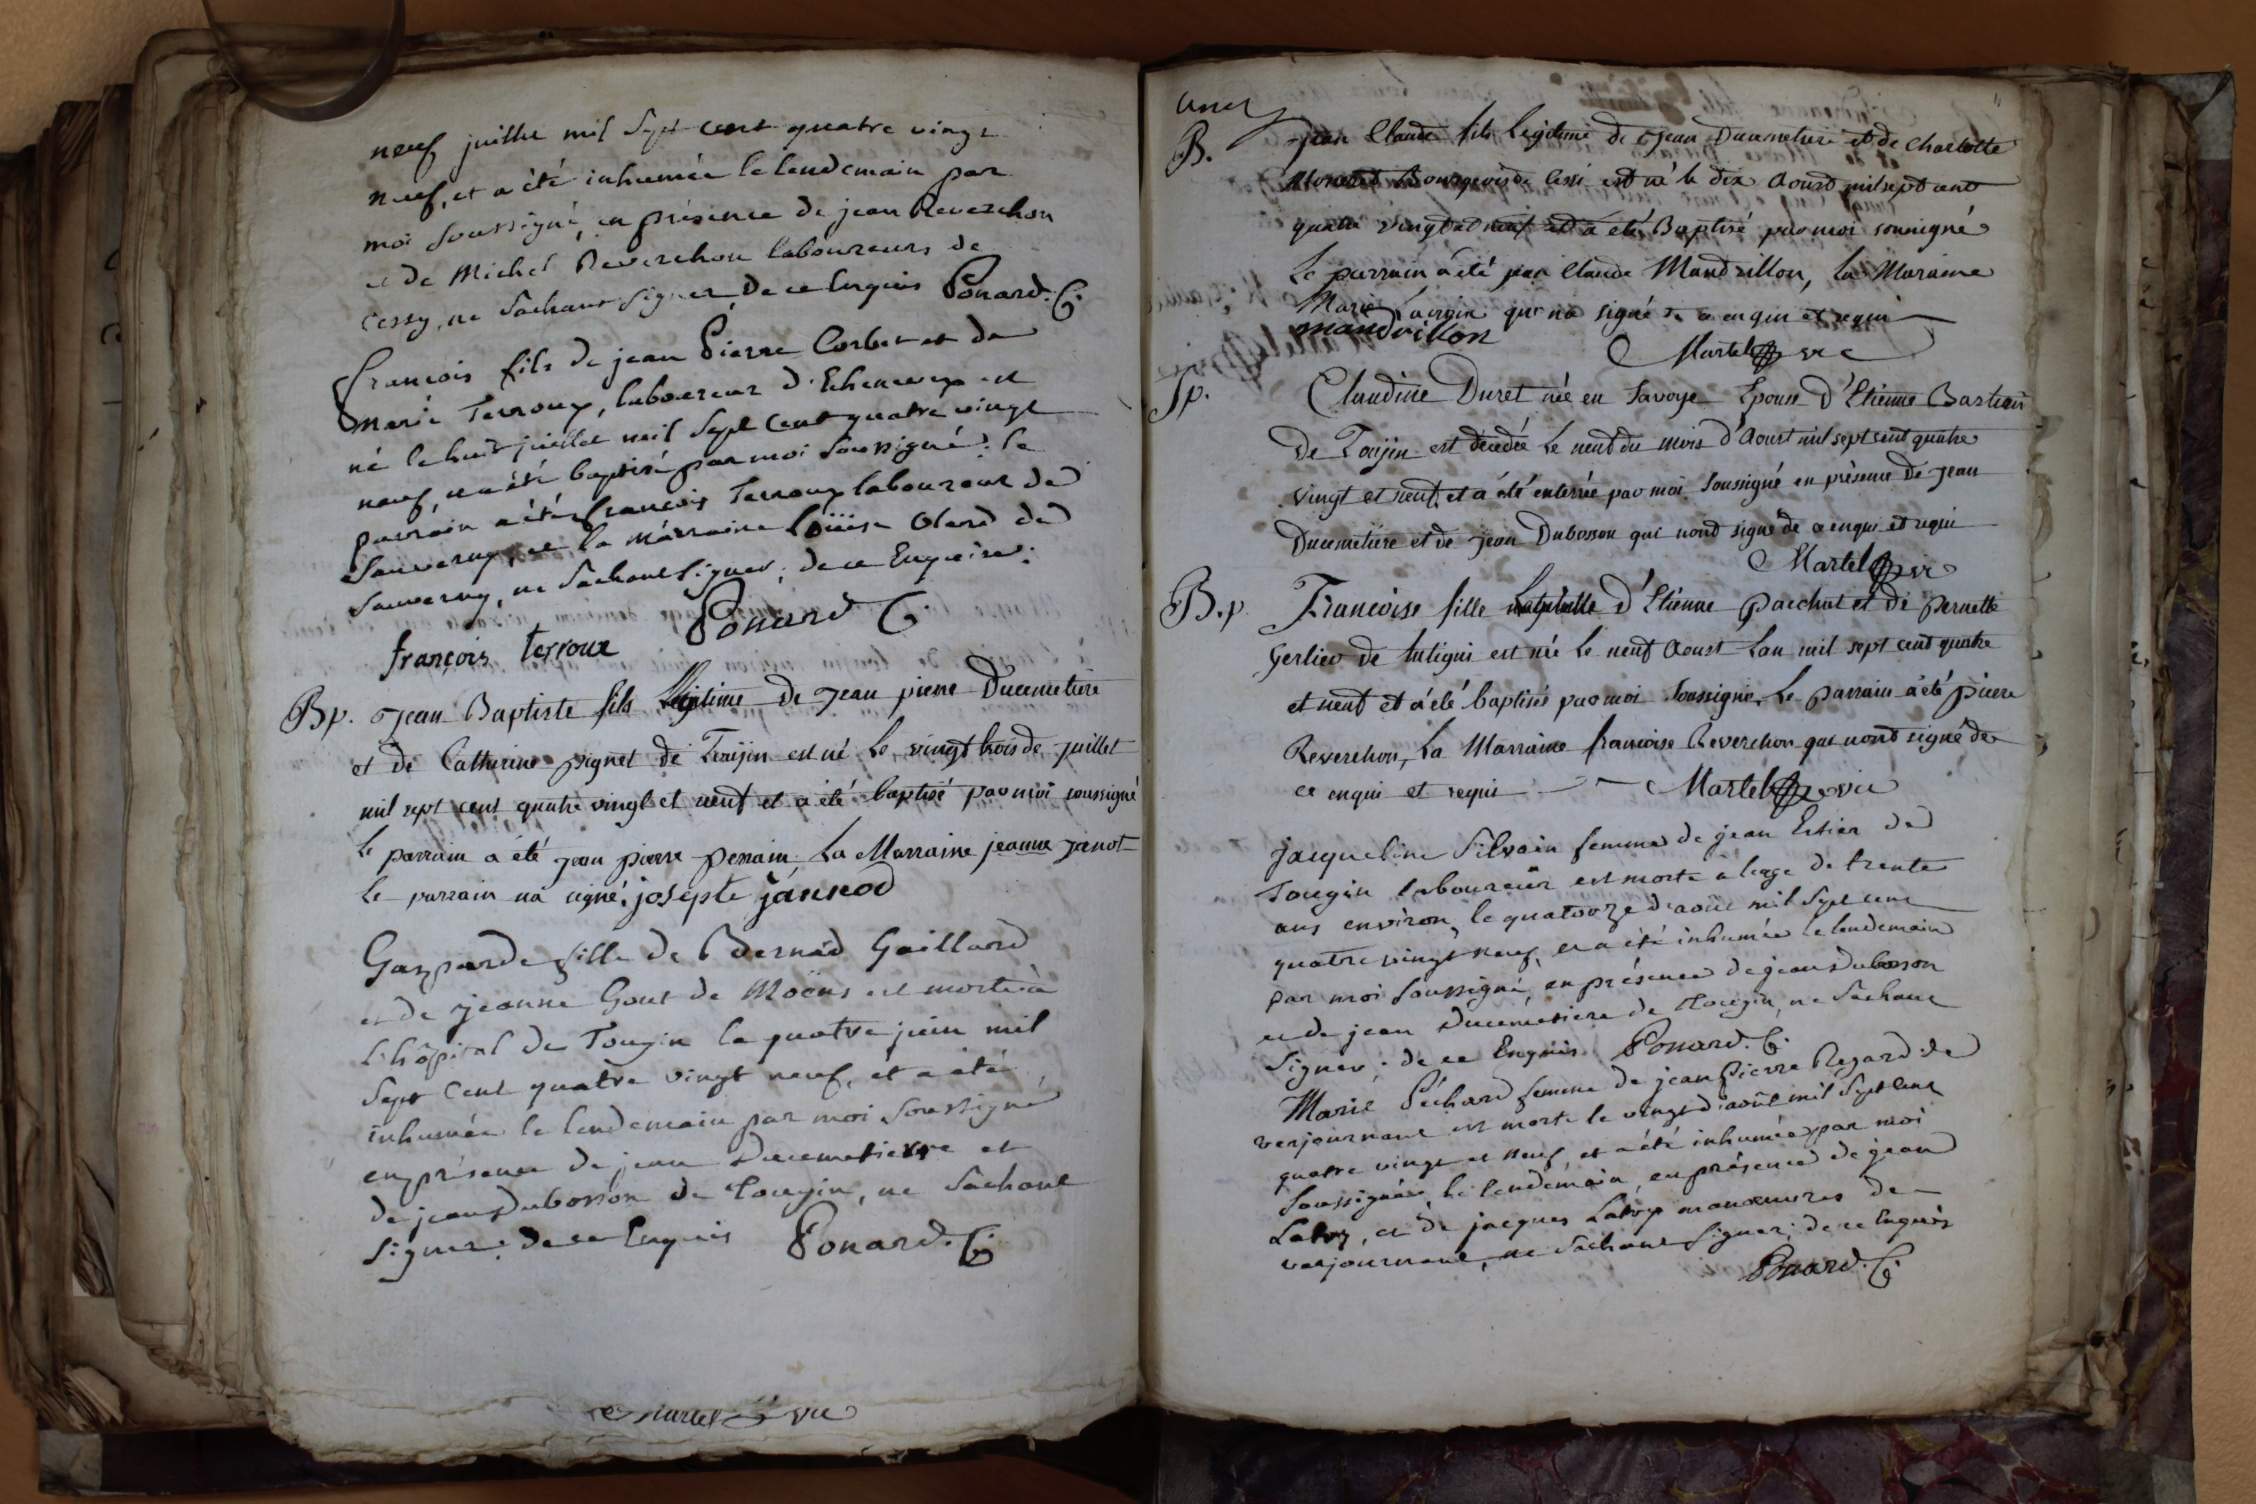 neuf juillet mil sept cent quatre vingt
neuf, et a été inhumée le lendemain par
moi soussigné, en présence de jean Reverchon
et de Michel Reverchon laboureurs de
Cessy, ne sachant signer, de ce Enquis Ponard. C.
François fils de jean Pierre Corbet et de
Marie Terroux, laboureur d'Echenevex est
né le huit juillet mil sept cent quatre vingt
neuf, et a été baptisé par moi soussigné: le
parrain a été françois Terroux laboureur de
Sauverny, et la marraine Loüise de
Sauverny, ne sachant signer, de ce Enquise.
françois terroux Ponard C.
Bp. Jean Baptiste fils Legitime de Jean pierre Ducemetiere
et de Catherine pignet de Toujin est né Le vingt trois de juillet
mil sept cent quatre vingt et neuf et a été baptisé par moi soussigné
le parrain a été jean pierre perrain La Marraine jeanne janot
le parrain na signé. josepte jannod
Gasparde fille de Bernád Gaillard
et de jeanne Gout de Moëns est morte à
l'hôpital de Tougin le quatre juin mil
sept cent quatre vingt neuf, et a été
inhumée le lendemain par moi soussigné
en présence de jean Ducemetierre et
de jean Dubosson de Tougin, ne sachant
signer: de ce Enquis Ponard. C.
Martel vic
B. Jean Claude fils Legitime de Jean Ducimetiere et de Charlotte
Bourgeois de Cessi est né le dix Aoust mil sept cent
quatre vingt et neuf et a été Baptisé par moi soussigné
Le parrain a été jean Claude Mandrillon, La Maraine
Marie qui na signé de ce enqui et requi
mandrillon Martel vic
Sp. Claudine Duret née en Savoye Epouse d'Etienne Bastian
de Toujin est décedée le neuf du mois d'Aoust mil sept cent quatre
vingt et neuf, et a été enterrée par moi soussigné en présence de jean
Ducemetiere et de jean Dubosson qui nont signé de ce enqui et requi
Martel vic
B.p. Francoise fille d'Etienne pacchut et de pernette
Gerlier de est née le neuf Aoust Lan mil sept cent quatre
et neuf et a été baptisés par moi soussigné, Le parrain a été pierre
Reverchon, La Marraine francoise Reverchon qui nont signé de
ce enqui et requi Martel vic
jacqueline Silvain femme de jean Estier de
Tougin laboureur est morte a l'age de trente
ans environ, le quatorze d'août mil sept cent
quatre vingt neuf, et a été inhumée le lendemain
par moi soussigné, en présence de jean Dubosson
et de jean Ducemetiere de Tougin, ne sachant
signer: de ce Enquis. Ponard. C.
Marie Péchard femme de jean Pierre Regard de
verjournant est morte le vingt d'août mil sept cent
quatre vingt et neuf, et a été inhumée par moi
soussignée, le lendemain, en présence de jean
Latoy, et de jacques Latoy manœuvres de
verjournant, ne sachant signer: de ce Enquis
Ponard. C.